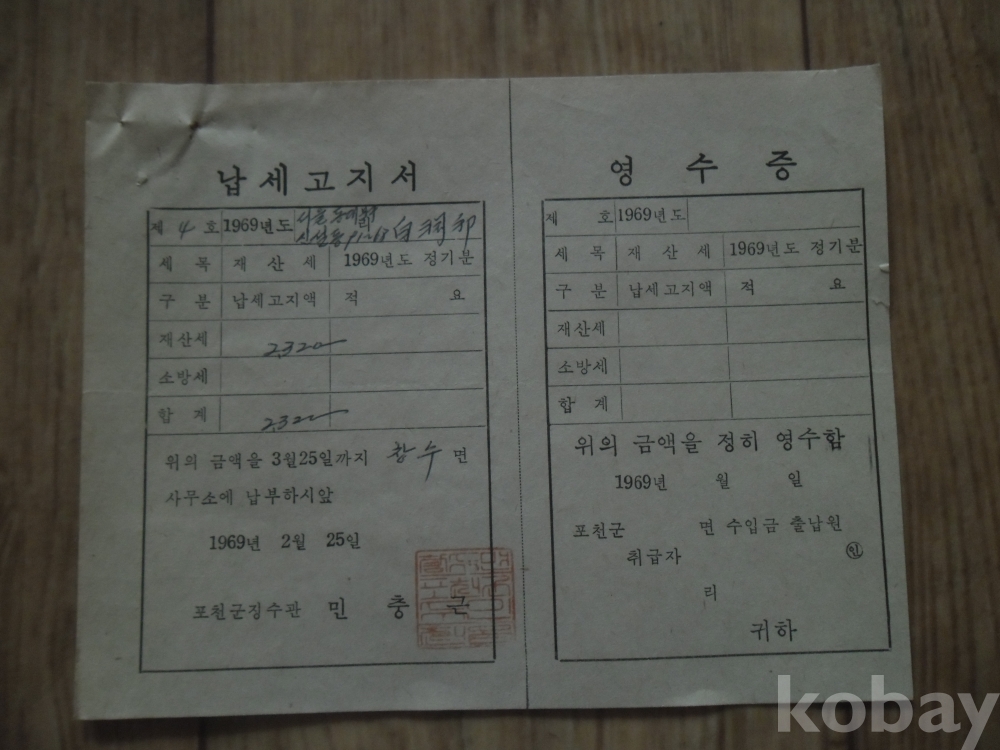 납세고지서
제 4 호 1969년도 서울 동대문구
신설동 91-18 白
세 목 재 산 세 1969년도 정기분
구 분 납세고지액 적 요
재산세 2320
소방세
합 계 2320
위의 금액을 3월25일까지 창수 면
사무소에 납부하시앞
1969년 2월 25일
포천군징수관 민 충 근
영 수 증
제 호 1969년도
세 목 재 산 세 1969년도 정기분
구 분 납세고지액 적 요
재산세
소방세
합 계
위의 금액을 정히 영수함
1969년 월 일
포천군 면 수입금 출납원
취급자 인
리
귀하
kobay